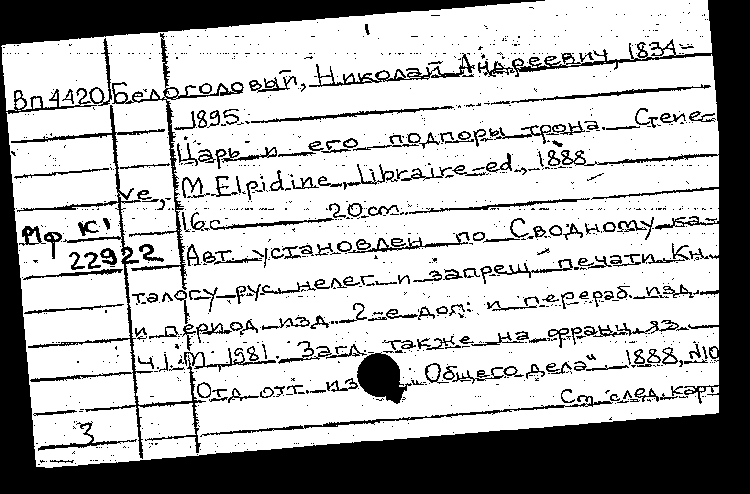 Вп 4420 Белоголовый, Николай Андреевич, 1834-
1895.
Царь и его подпоры трона. Gene-
ve, M. Elpidine, libraire-ed, 1888
16 с. 20 cm.
Мф К1
22922 Авт. установлен по Сводному ка-
талогу рус. нелег. и запрещ. печати. Кн.
и период. изд. 2-е доп. и перераб. изд.
ч. 1. М., 1981. Загл. также на франц. яз.
Отд. отт. из „Общего дела“. 1888, №10
3 См. след. карт.